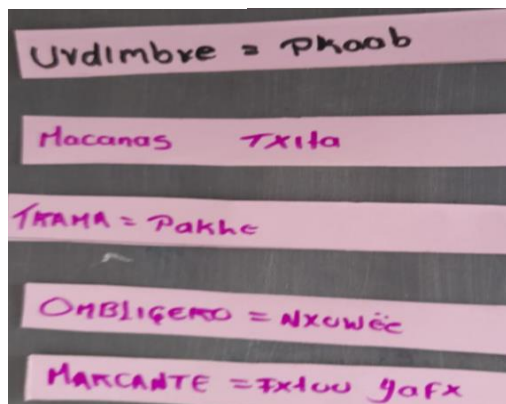 Urdimbre = Pkaab
Macanas TXIta
TRAMA = Pakhe
OMBLIGERO = NXUWëc
MARCANTE = FXtuu yafx